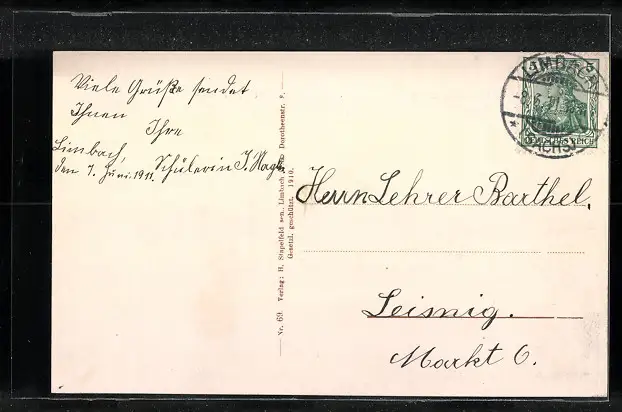 Viele Grüße sendet
Ihnen
Ihre
Limbach,
den 7. Juni 1911. Schülerin J.
Nr. 69. Verlag: H. Stapelfeld sen., Limbach, Dorotheenstr.
Gesetzl. geschützt. 1910.
LIMBACH
DEUTSCHES REICH
Herrn Lehrer Barthel,
Leisnig.
Markt 6.